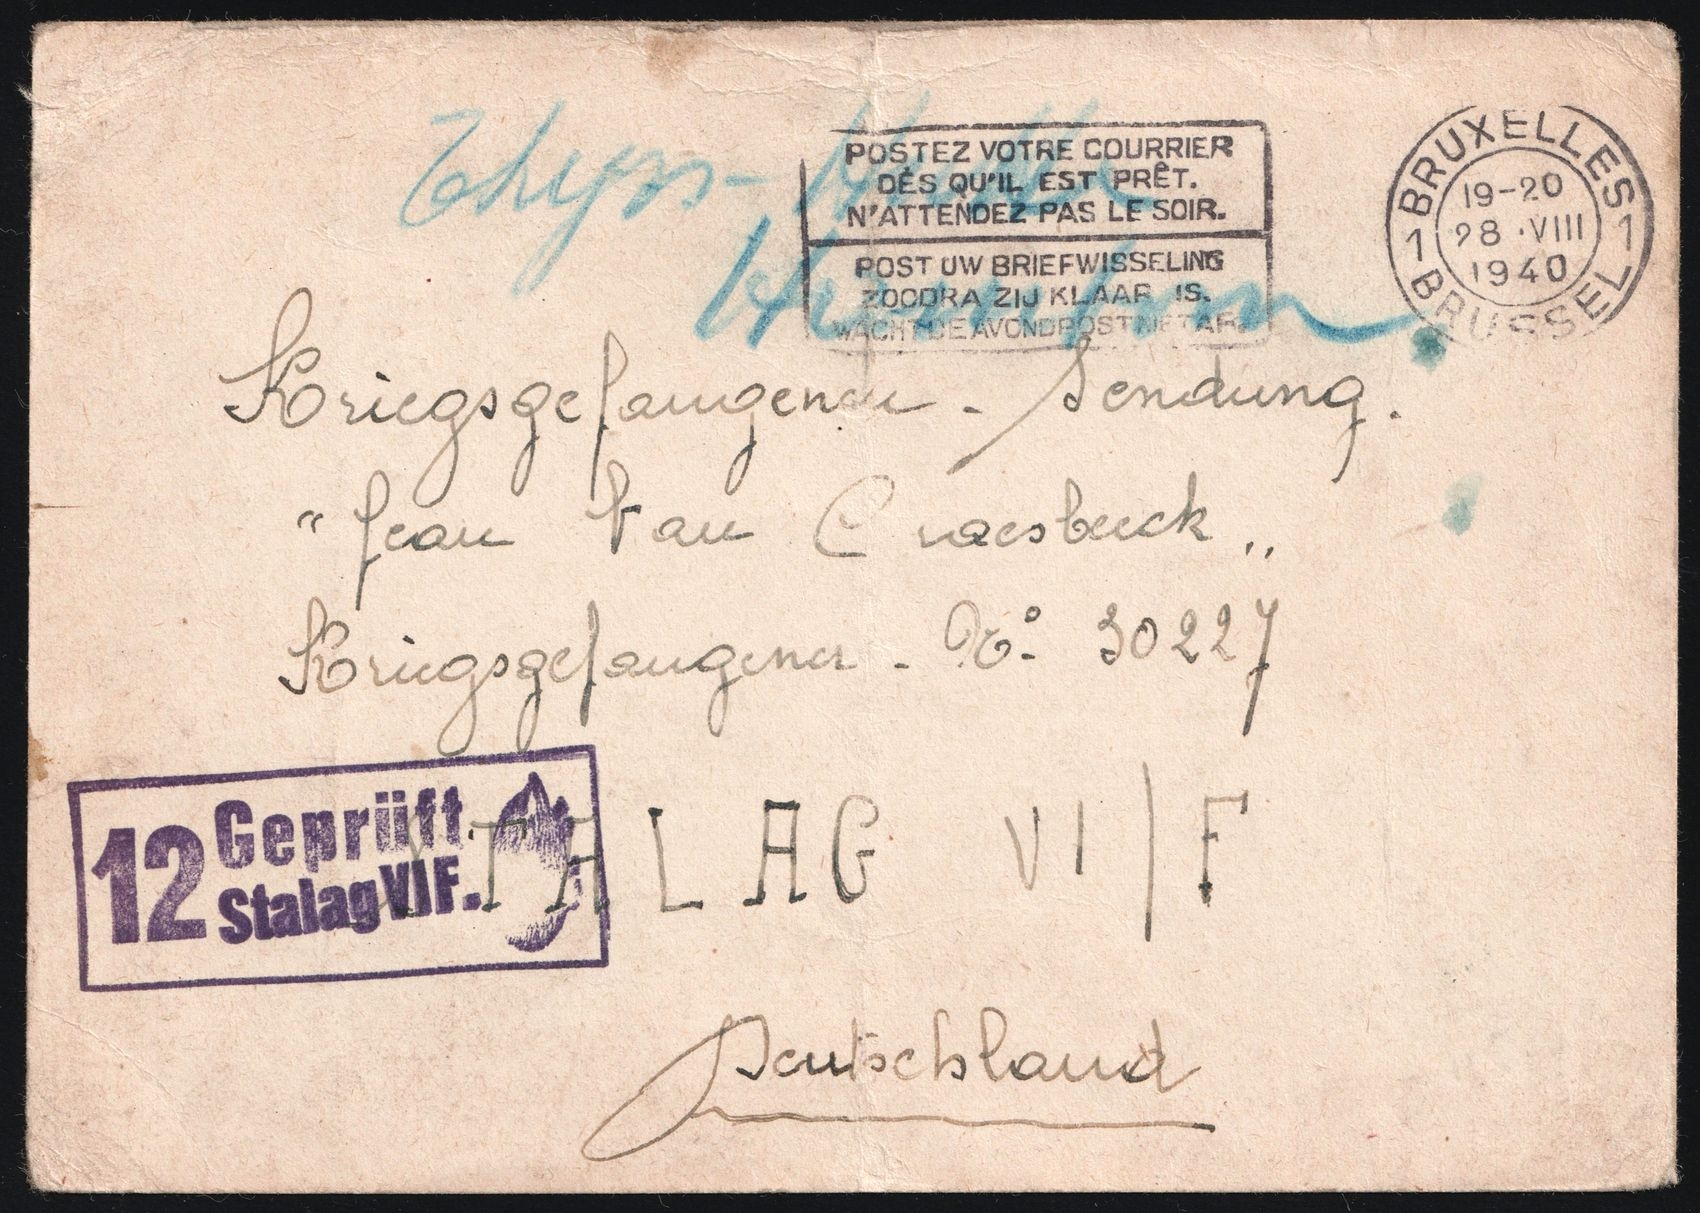 Thyss-
POSTEZ VOTRE COURRIER
DÈS QU'IL EST PRÊT.
N'ATTENDEZ PAS LE SOIR.
POST UW BRIEFWISSELING
ZOODRA ZIJ KLAAR IS.
WACHT DE AVONDPOST NIET AF.
1 BRUXELLES 1
19-20
28 ·VIII
1940
BRUSSEL
Kriegsgefangenen - Sendung.
" Jean Van Craesbeeck "
Kriegsgefangener - No. 30227
STALAG VI/F
12 Geprüft
Stalag VIF.
Deutschland